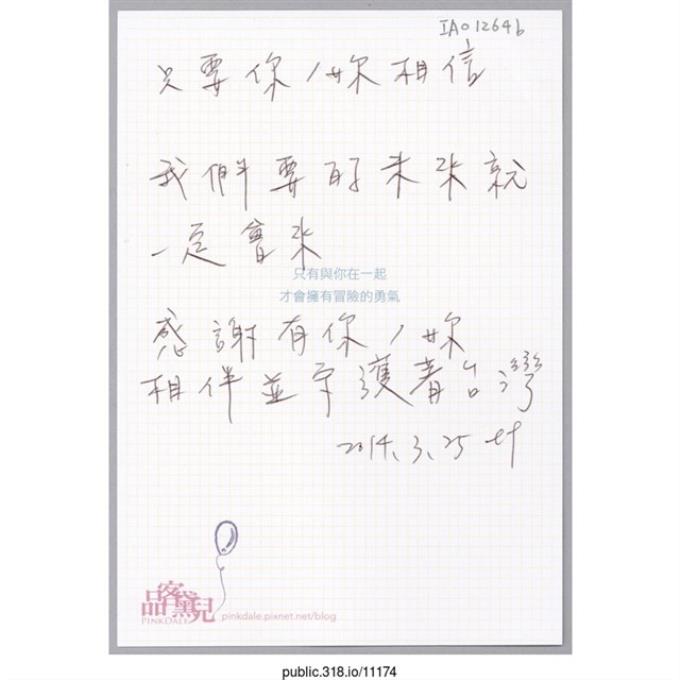 IA012646
只要你/妳相信
我們要的未來就
一定會來
只有與你在一起
才會擁有冒險的勇氣
感謝有你/妳
相伴並守護著台灣
2014.3.25
品客黛兒
PINKDALE
pinkdale.pixnet.net/blog
public.318.io/11174